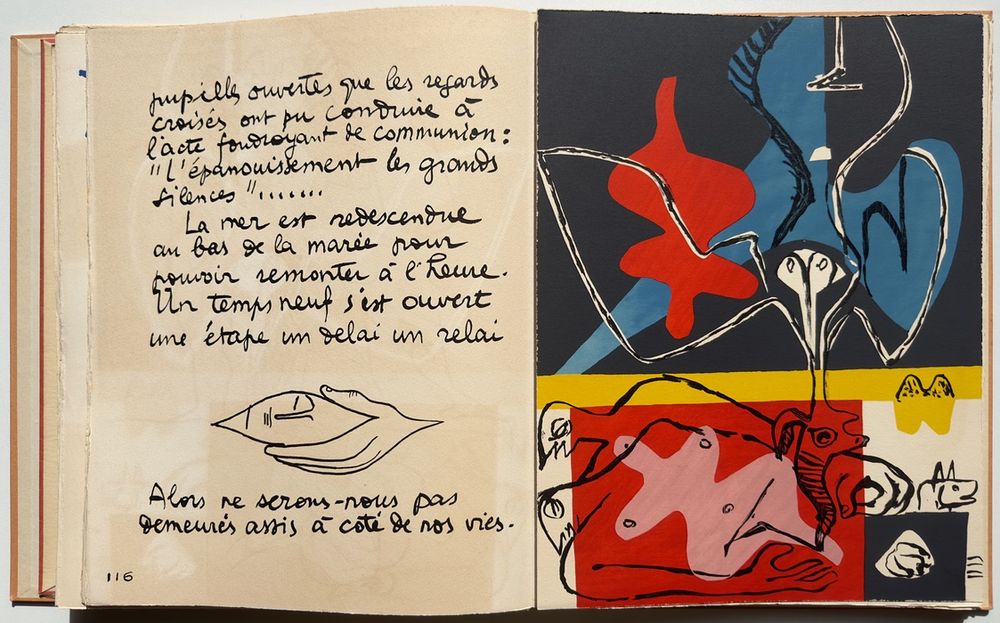 pupilles ouvertes que les regards
croisés ont pu conduire à
l'acte foudroyant de communion :
"L'épanouissement les grands
silences".......
La mer est redescendue
au bas de la marée pour
pouvoir remonter à l'heure.
Un temps neuf s'est ouvert
une étape un délai un relai
Alors ne serons-nous pas
demeurés assis à côté de nos vies.
116